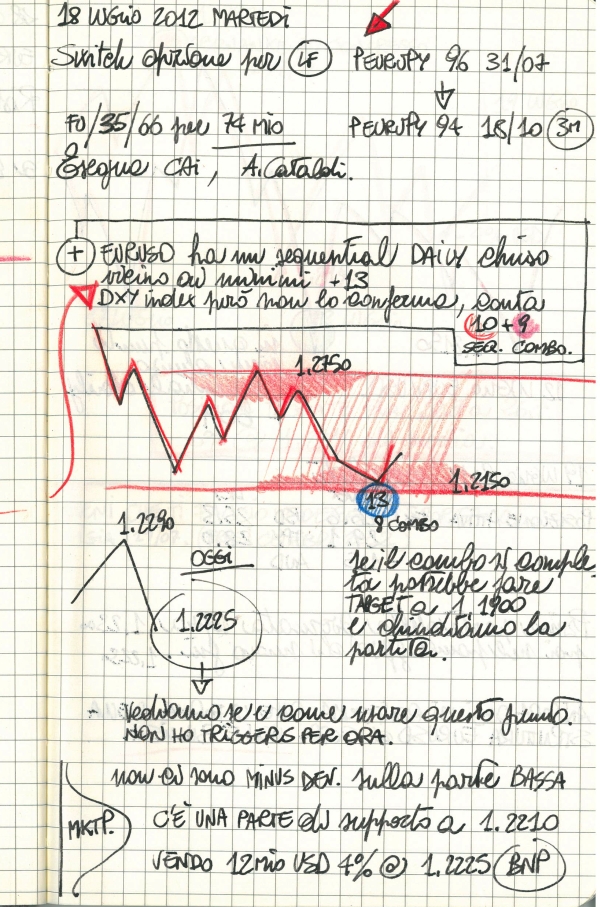 18 LUGLIO 2012 MARTEDÌ
Switch opzione per LF PEURUPY 96 31/07
FU/35/66 per 74 MIO PEURUPY 94 18/10 3M
Esegue CAI, A. Cataldi.
+ EURUSD ha un sequential DAILY chiuso
vicino ai minimi +13
DXY index però non lo conferma, conta
10 + 9
SEQ. COMBO.
1,2750
1,2150
13
8 COMBO
1.2290
OGGI
1.2225
se il combo si comple
ta potrebbe fare
TARGET a 1,1900
e chiudiamo la
partita.
vediamo se e come usare questo punto.
NON HO TRIGGERS PER ORA.
non ci sono MINUS DEV. sulla parte BASSA
MKTP.
C'È UNA PARTE di supporto a 1.2210
VENDO 12 Mio USD 4% @ 1.2225 BNP